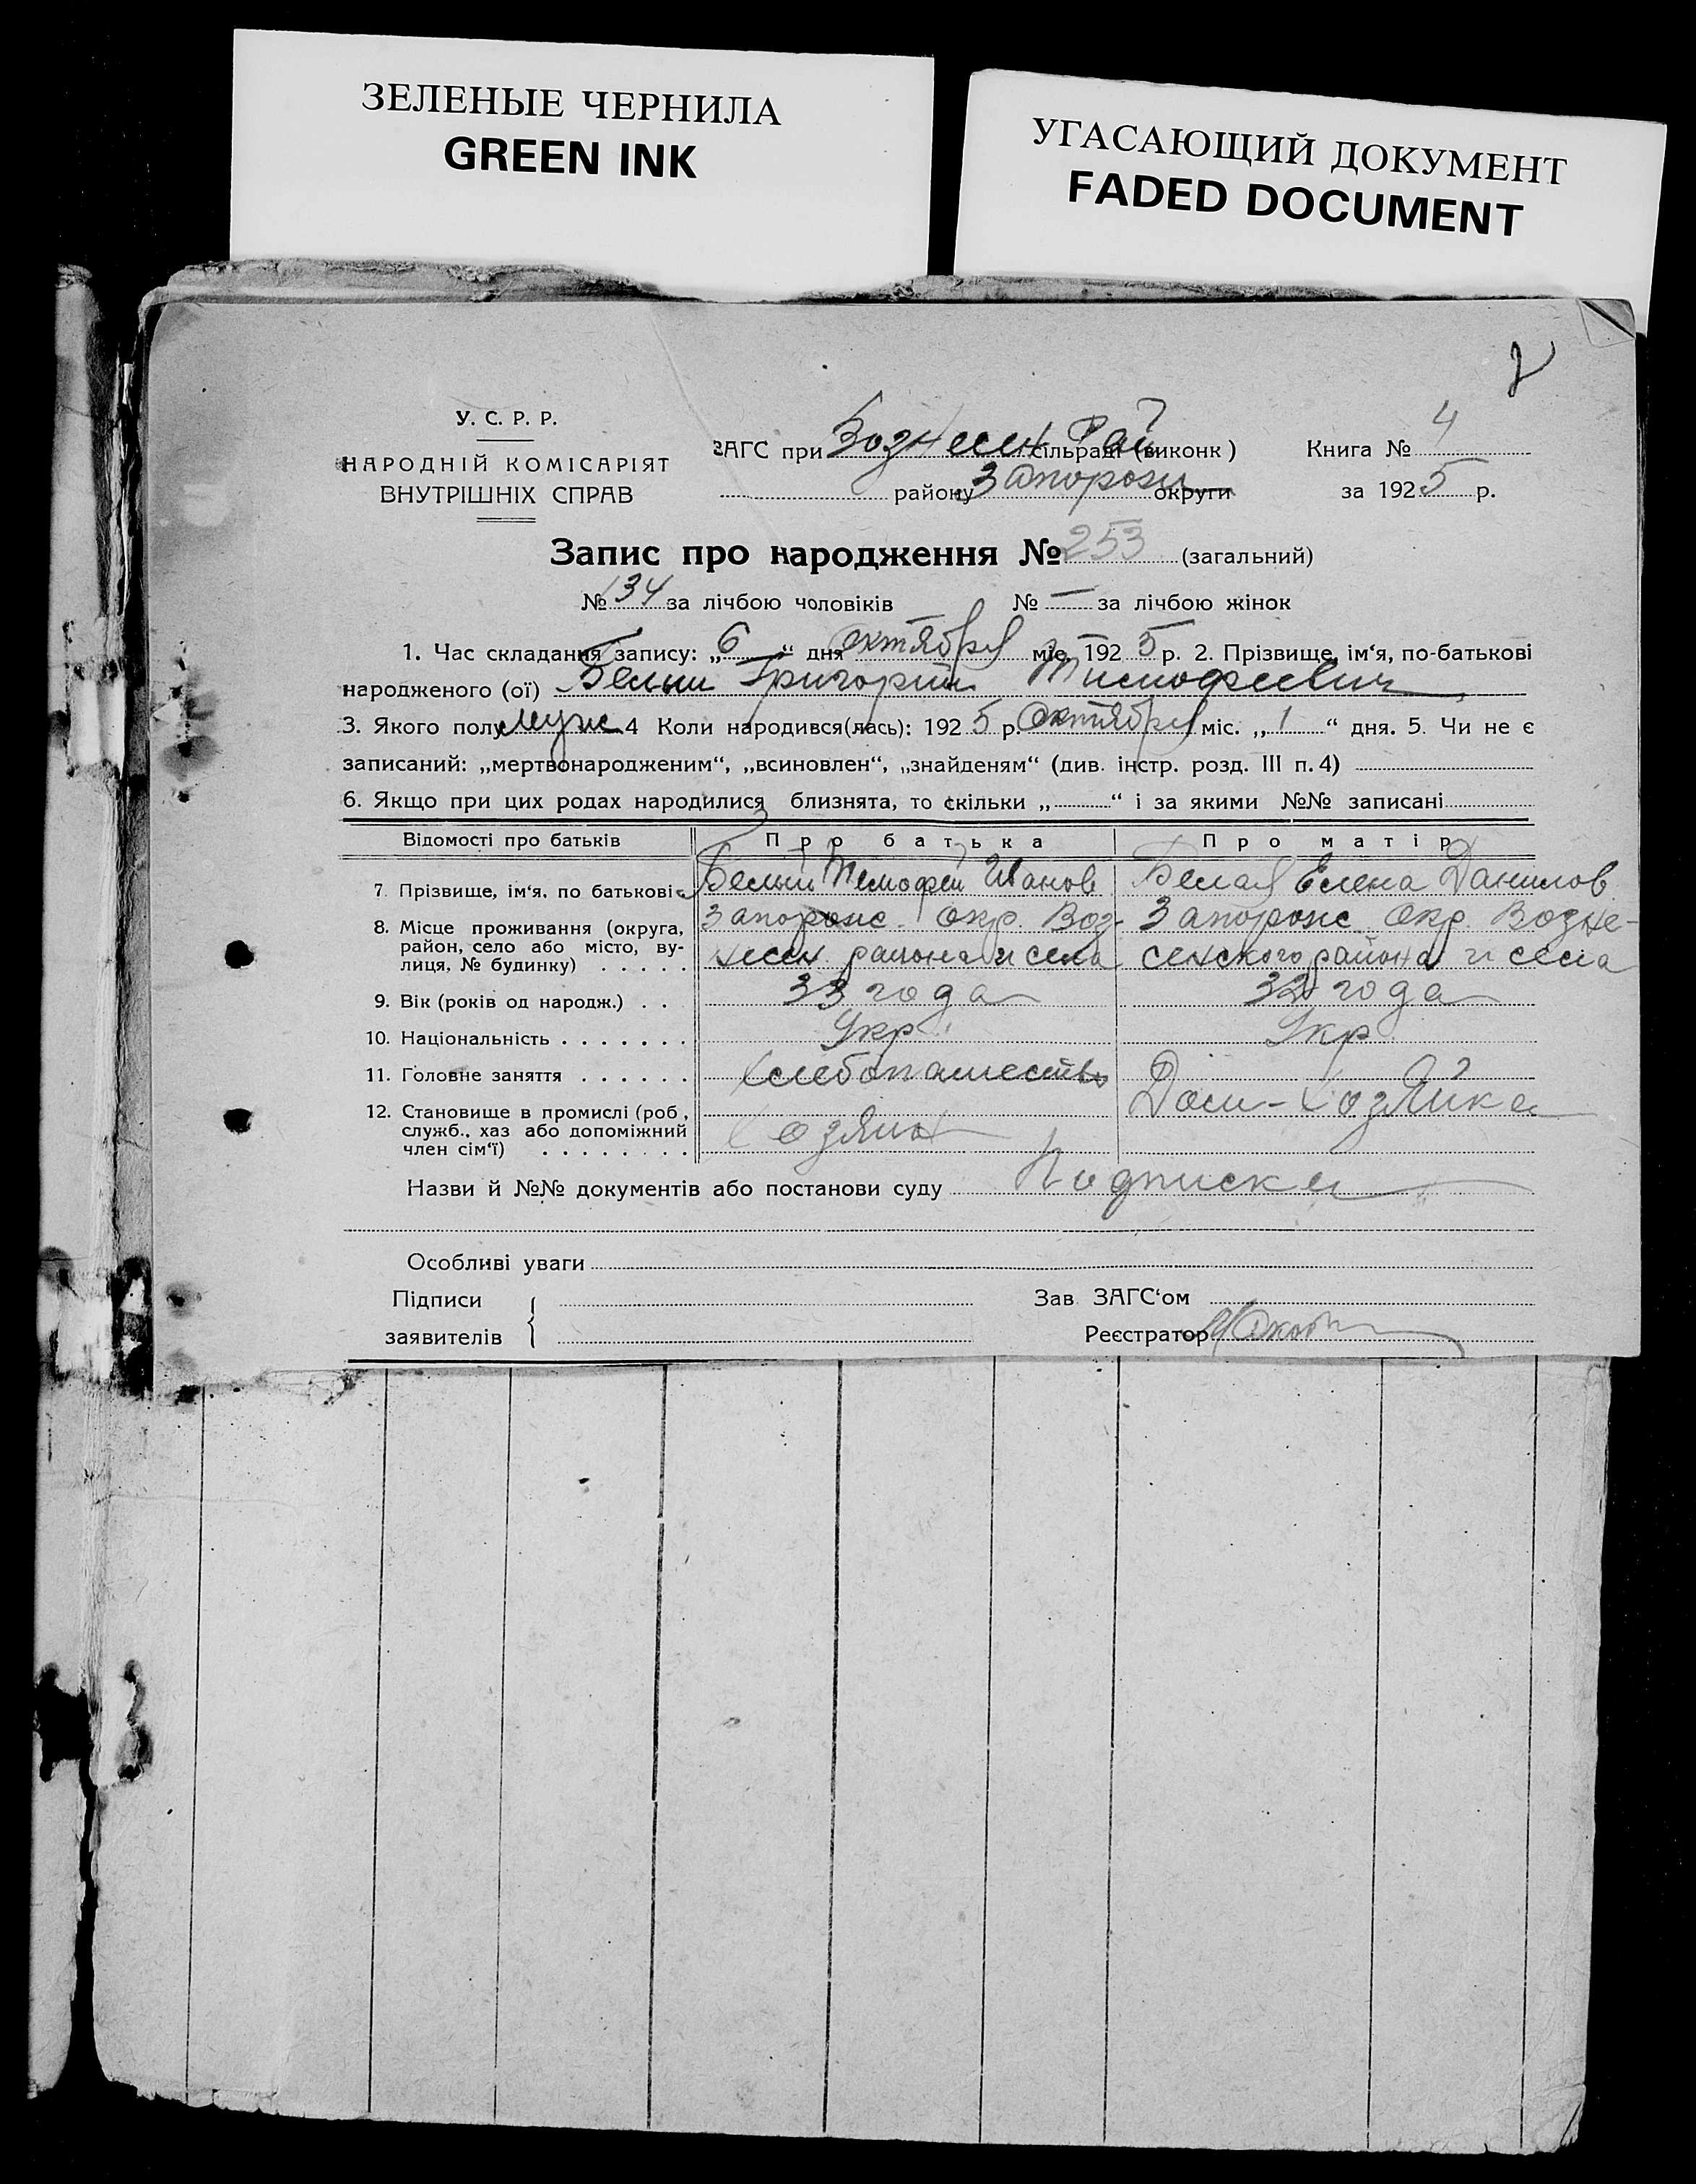 ЗЕЛЕНЫЕ ЧЕРНИЛА
GREEN INK
УГАСАЮЩИЙ ДОКУМЕНТ
FADED DOCUMENT
2
У. С. Р. Р.
НАРОДНІЙ КОМІСАРІЯТ
ВНУТРІШНІХ СПРАВ
ЗАГС при Вознесен Рай сільраді (виконк)
району Запорож округи
Книга № 4
за 1925 р.
Запис про народження № 253 (загальний)
№ 134 за лічбою чоловіків № — за лічбою жінок
1. Час складання запису: „6“ дня октября міс. 1925 р. 2. Прізвище, ім‘я, по-батькові
народженого (ої) Белый Григорий Тимофеевич
3. Якого полу муж 4 Коли народився(лась): 1925 р. октября міс. „1“ дня. 5. Чи не є
записаний: „мертвонародженим“, „всиновлен“, „знайденям“ (див. інстр. розд. III п. 4)
6. Якщо при цих родах народилися близнята, то скільки „ “ і за якими №№ записані
Відомості про батьків Про батька Про матір
7. Прізвище, ім‘я, по батькові Белый Тимофей Иванов Белая Елена Данилов
8. Місце проживання (округа, Запорож. Окр. Воз- Запорож. Окр. Возне-
район, село або місто, ву- несен. района и села сенского района и села
лиця, № будинку) . . . . .
9. Вік (років од народж.) . . 33 года 32 года
10. Національність . . . . . . . Укр. Укр
11. Головне заняття . . . . . . Хлебопашество
12. Становище в промислі (роб., Дом-Хозяйка
служб., хаз або допоміжний Хозяин
член сім‘ї) . . . . . . . .
Назви й №№ документів або постанови суду Подписка
Особливі уваги
Підписи
заявителів
Зав ЗАГС‘ом
Реєстратор